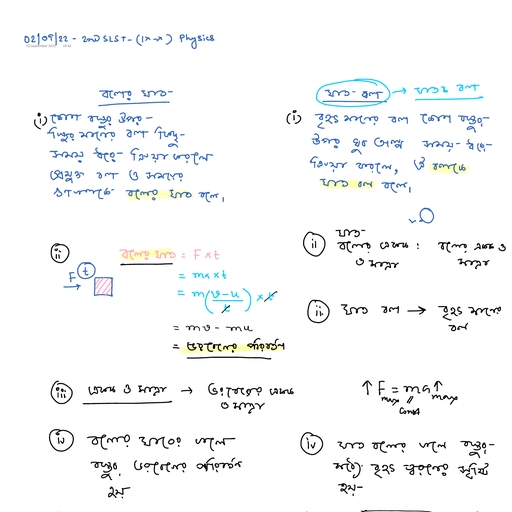 02/09/22 - 2nd SLST - (IX-X) Physics
বলের ঘাত-
(i) কোন বস্তুর উপর-
কিছু মানের বল কিছু-
সময় ধরে- ক্রিয়া করলে
প্রযুক্ত বল ও সময়ের
গুণফলকে বলের ঘাত বলে,
(ii) বলের ঘাত = F × t
= ma × t
= m(v-u/t) × t
= mv - mu
= ভরবেগের পরিবর্তন
F t
(iii) একক ও মাত্রা → ভরবেগের একক
ও মাত্রা
(iv) বলের ঘাতের ফলে
বস্তুর ভরবেগের পরিবর্তন
হয়
ঘাত-বল → ঘাত বল
(i) বৃহৎ মানের বল কোন বস্তুর-
উপর খুব অল্প সময়-ধরে-
ক্রিয়া করলে, ঐ বলকে
ঘাত বল বলে,
(ii) ঘাত-
বলের একক : বলের একক ও
ও মাত্রা মাত্রা
ঘাত বল → বৃহৎ মানের
বল
↑F = ma↑
max // max
const
(iv) ঘাত বলের ফলে বস্তুর-
মধ্যে বৃহৎ ত্বরণের সৃষ্টি
হয়-